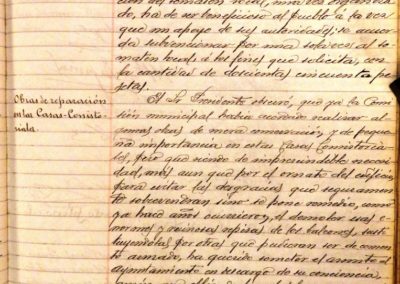 ción del somatén local, una vez organiza-
do, ha de ser beneficioso al pueblo á la vez
que un apoyo de sus autoridades; se acuer-
da subvencionar por una sola vez al so-
matén local á los fines que solicita, con
la cantidad de doscientas cincuenta pe-
setas.
Obras de reparación
en las Casas-Consisto-
riales.
El Sr. Presidente observó, que ya la Comi-
sión municipal había acordado realizar al
gunas obras de mera y de peque-
ña importancia en estas Casas Consistoria
les, pero que siendo de imprescindible necesi-
dad, más aun que por el ornato del edificio,
para evitar las desgracias que seguramen-
te sobrevendrán sino se pone remedio, como
ya hace años ocurriera, el demoler las e-
normes y ruinosas repisas de los balcones, susti-
tuyéndolas por otras que pudieran ser de cemen-
to armado, ha querido someter el asunto al
Ayuntamiento en descargo de su conciencia,